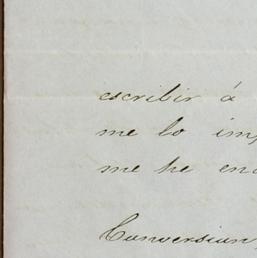 escribir á
me lo im
me he en
Conversian